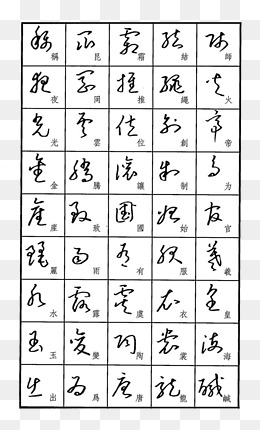 稱 昆 霜 結 師
夜 岡 推 繩 火
光 雲 位 創 帝
金 騰 讓 制 为
座 致 國 始 官
麗 雨 有 服 羲
水 露 虞 衣 皇
玉 變 陶 裳 海
出 爲 唐 龍 鹹